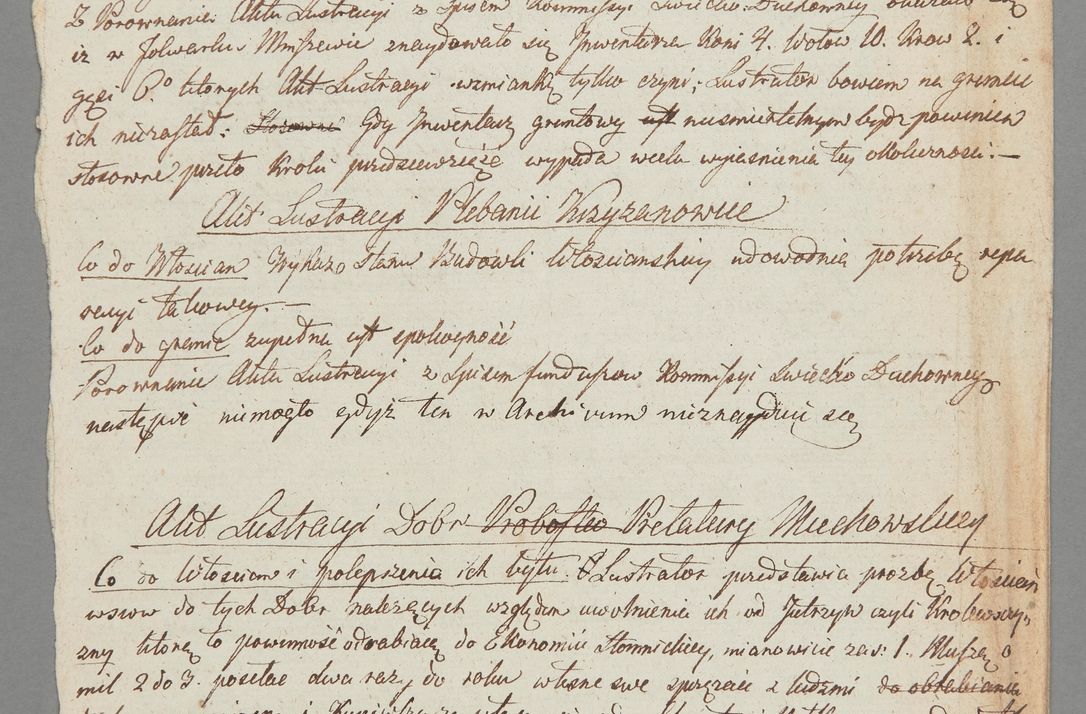 Z Porownania Aktu Lustracyi z Spisem Kommissyi Swiecko Duchowney okazało się
iz w folwarku Mniszewie znaydowało się Inwentarza Koni 4. Wołow 10. Krow 2. i
gęsi 6.º ktorych Akt Lustracyi wzmiankę tylko czyni; Lustrator bowiem na gruncie
ich niezastał. Stosowne Gdy Inwentarz gruntowy iest nieśmiertelnym bydz powinien
stosowne przeto kroki przedsiewziąść wypada wcelu wyiaśnienia tey okoliczności.—
Akt Lustracyi Plebanii Krzyzanowice
Co do Włoscian Wykaz Stanu Budowli Włościanskiey udowodnia potrzebę repa
racyi takowey.—
Co do granic zupełna iest spokoyność
Porownanie Aktu Lustracyi z Spisem funduszow Kommissyi Swiecko Duchowney
nastąpić niemogło gdyż ten w Archivum nieznayduie się
Akt Lustracyi Dobr Probostwa Prelatury Miechowskiey
Co do Włoscian i polepszenia ich bytu. Lustrator przedstawia prozbę Włościan
wsiow do tych Dobr należących względem uwolnienia ich od Jutrzyn czyli Krolewszy,,
zny ktorą to powinność odrabiaią do Ekonomii Słomnickiey, mianowicie zas: 1. Muszą o
mil 2 do 3. posełać dwa razy do roku własne swe sprzęzaie z ludzmi do obrabiania